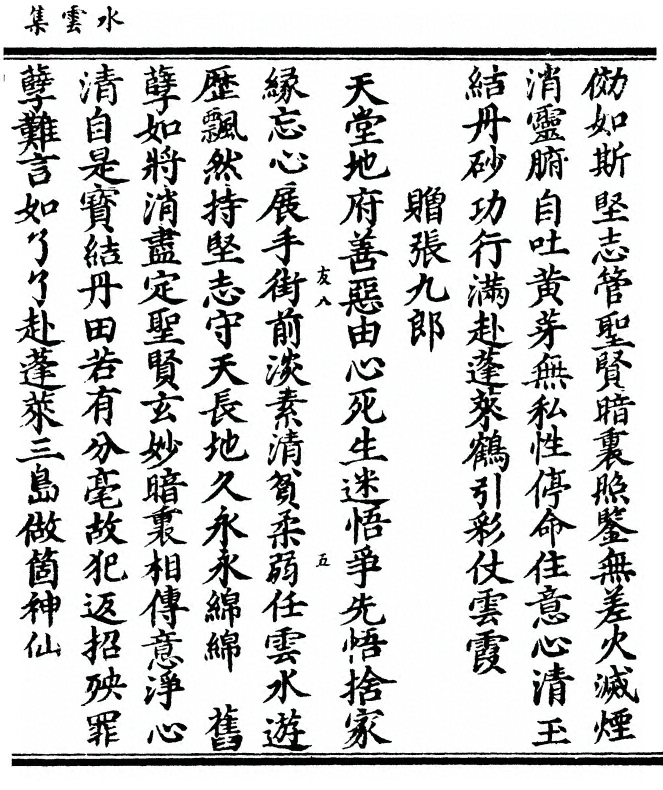 水雲集
效如斯堅志管聖賢暗裏照鑒無差火滅煙
消靈腑自吐黃芽無私性停命住意心清玉
結丹砂功行滿赴蓬萊鶴引彩仗雲霞
贈張九郎
天堂地府善惡由心死生迷悟爭先悟捨家
緣忘心展手街前淡素清貧柔弱任雲水遊
歷飄然持堅志守天長地久永永綿綿　舊
孽如將消盡定聖賢玄妙暗裏相傳意淨心
清自是寶結丹田若有分毫故犯返招殃罪
孽難言如了了赴蓬萊三島做箇神仙
友八
五